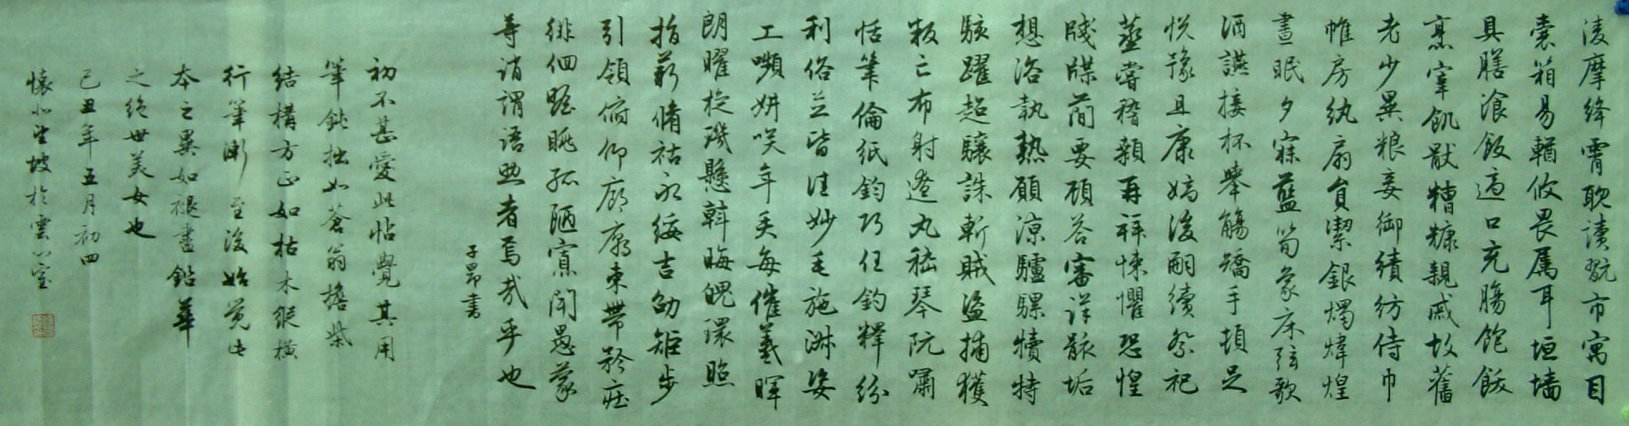 淩摩絳霄耽讀翫市寓目
囊箱易輶攸畏属耳垣墻
具膳飡飯適口充腸飽飫
烹宰飢猒糟糠親戚故舊
老少異粮妾御績紡侍巾
帷房紈扇員潔銀燭煒煌
晝眠夕寐藍筍象床弦歌
酒讌接杯舉觴矯手頓足
悅豫且康嫡後嗣續祭祀
蒸嘗稽顙再拜悚懼恐惶
牋牒簡要顧答審詳骸垢
想浴執熱願涼驢騾犢特
駭躍超驤誅斬賊盗捕獲
叛亡布射遼丸嵇琴阮嘯
恬筆倫紙鈞巧任釣釋紛
利俗並皆佳妙毛施淋姿
工嚬妍咲年矢每催羲暉
朗曜旋璣懸斡晦魄環照
指薪脩祜永綏吉劭矩步
引領俯仰廊廟束帶矜莊
徘徊瞻眺孤陋寡聞愚蒙
等誚謂語助者焉哉乎也
子昂書
初不甚愛此帖覺其用
筆鈍拙如蒼翁擔柴
結構方正如枯木縱橫
行筆漸至後始覺此
本之異如褪盡鉛華
之絕世美女也
己丑年五月初四
坡於雲